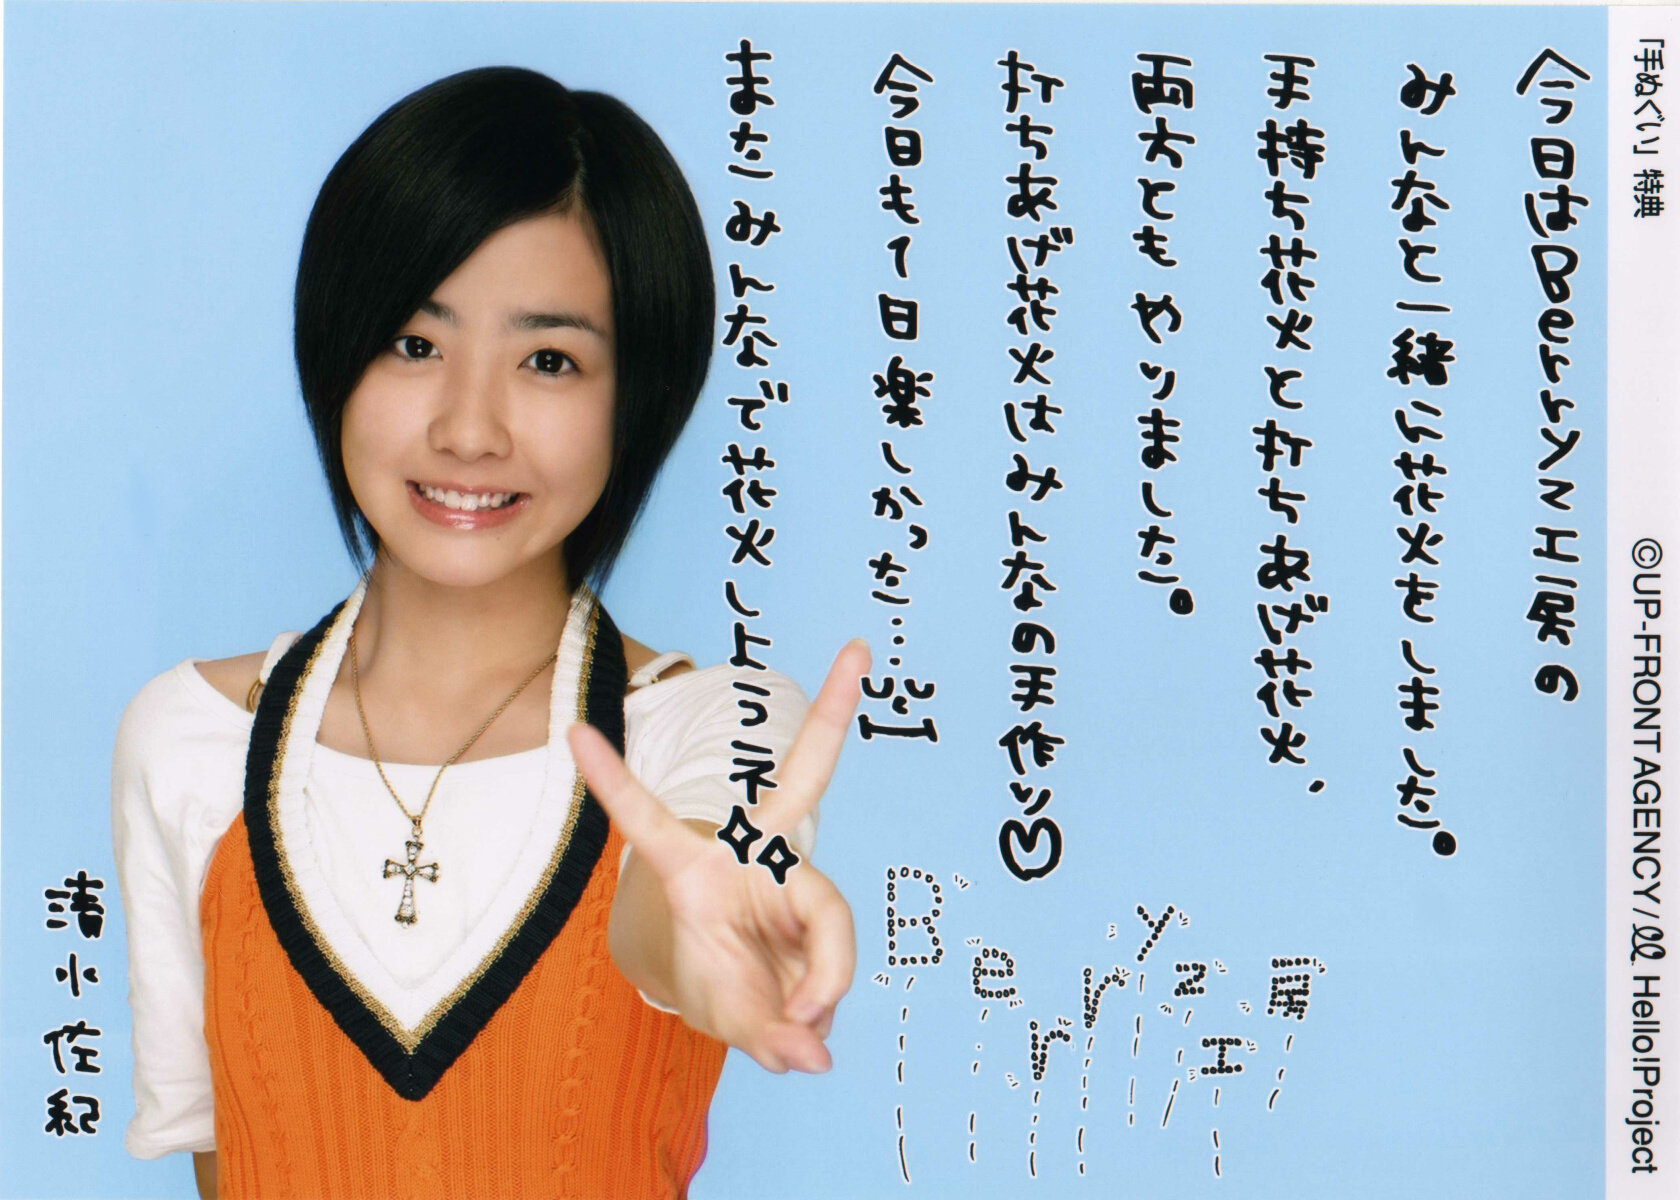 今日はBerryz工房の
みんなと一緒に花火をしました。
手持ち花火と打ちあげ花火、
両方ともやりました。
打ちあげ花火はみんなの手作り♡
今日も1日楽しかった…
またみんなで花火しようネ
清水佐紀
Berryz工房
「手ぬぐい」特典
©UP-FRONT AGENCY/ Hello!Project